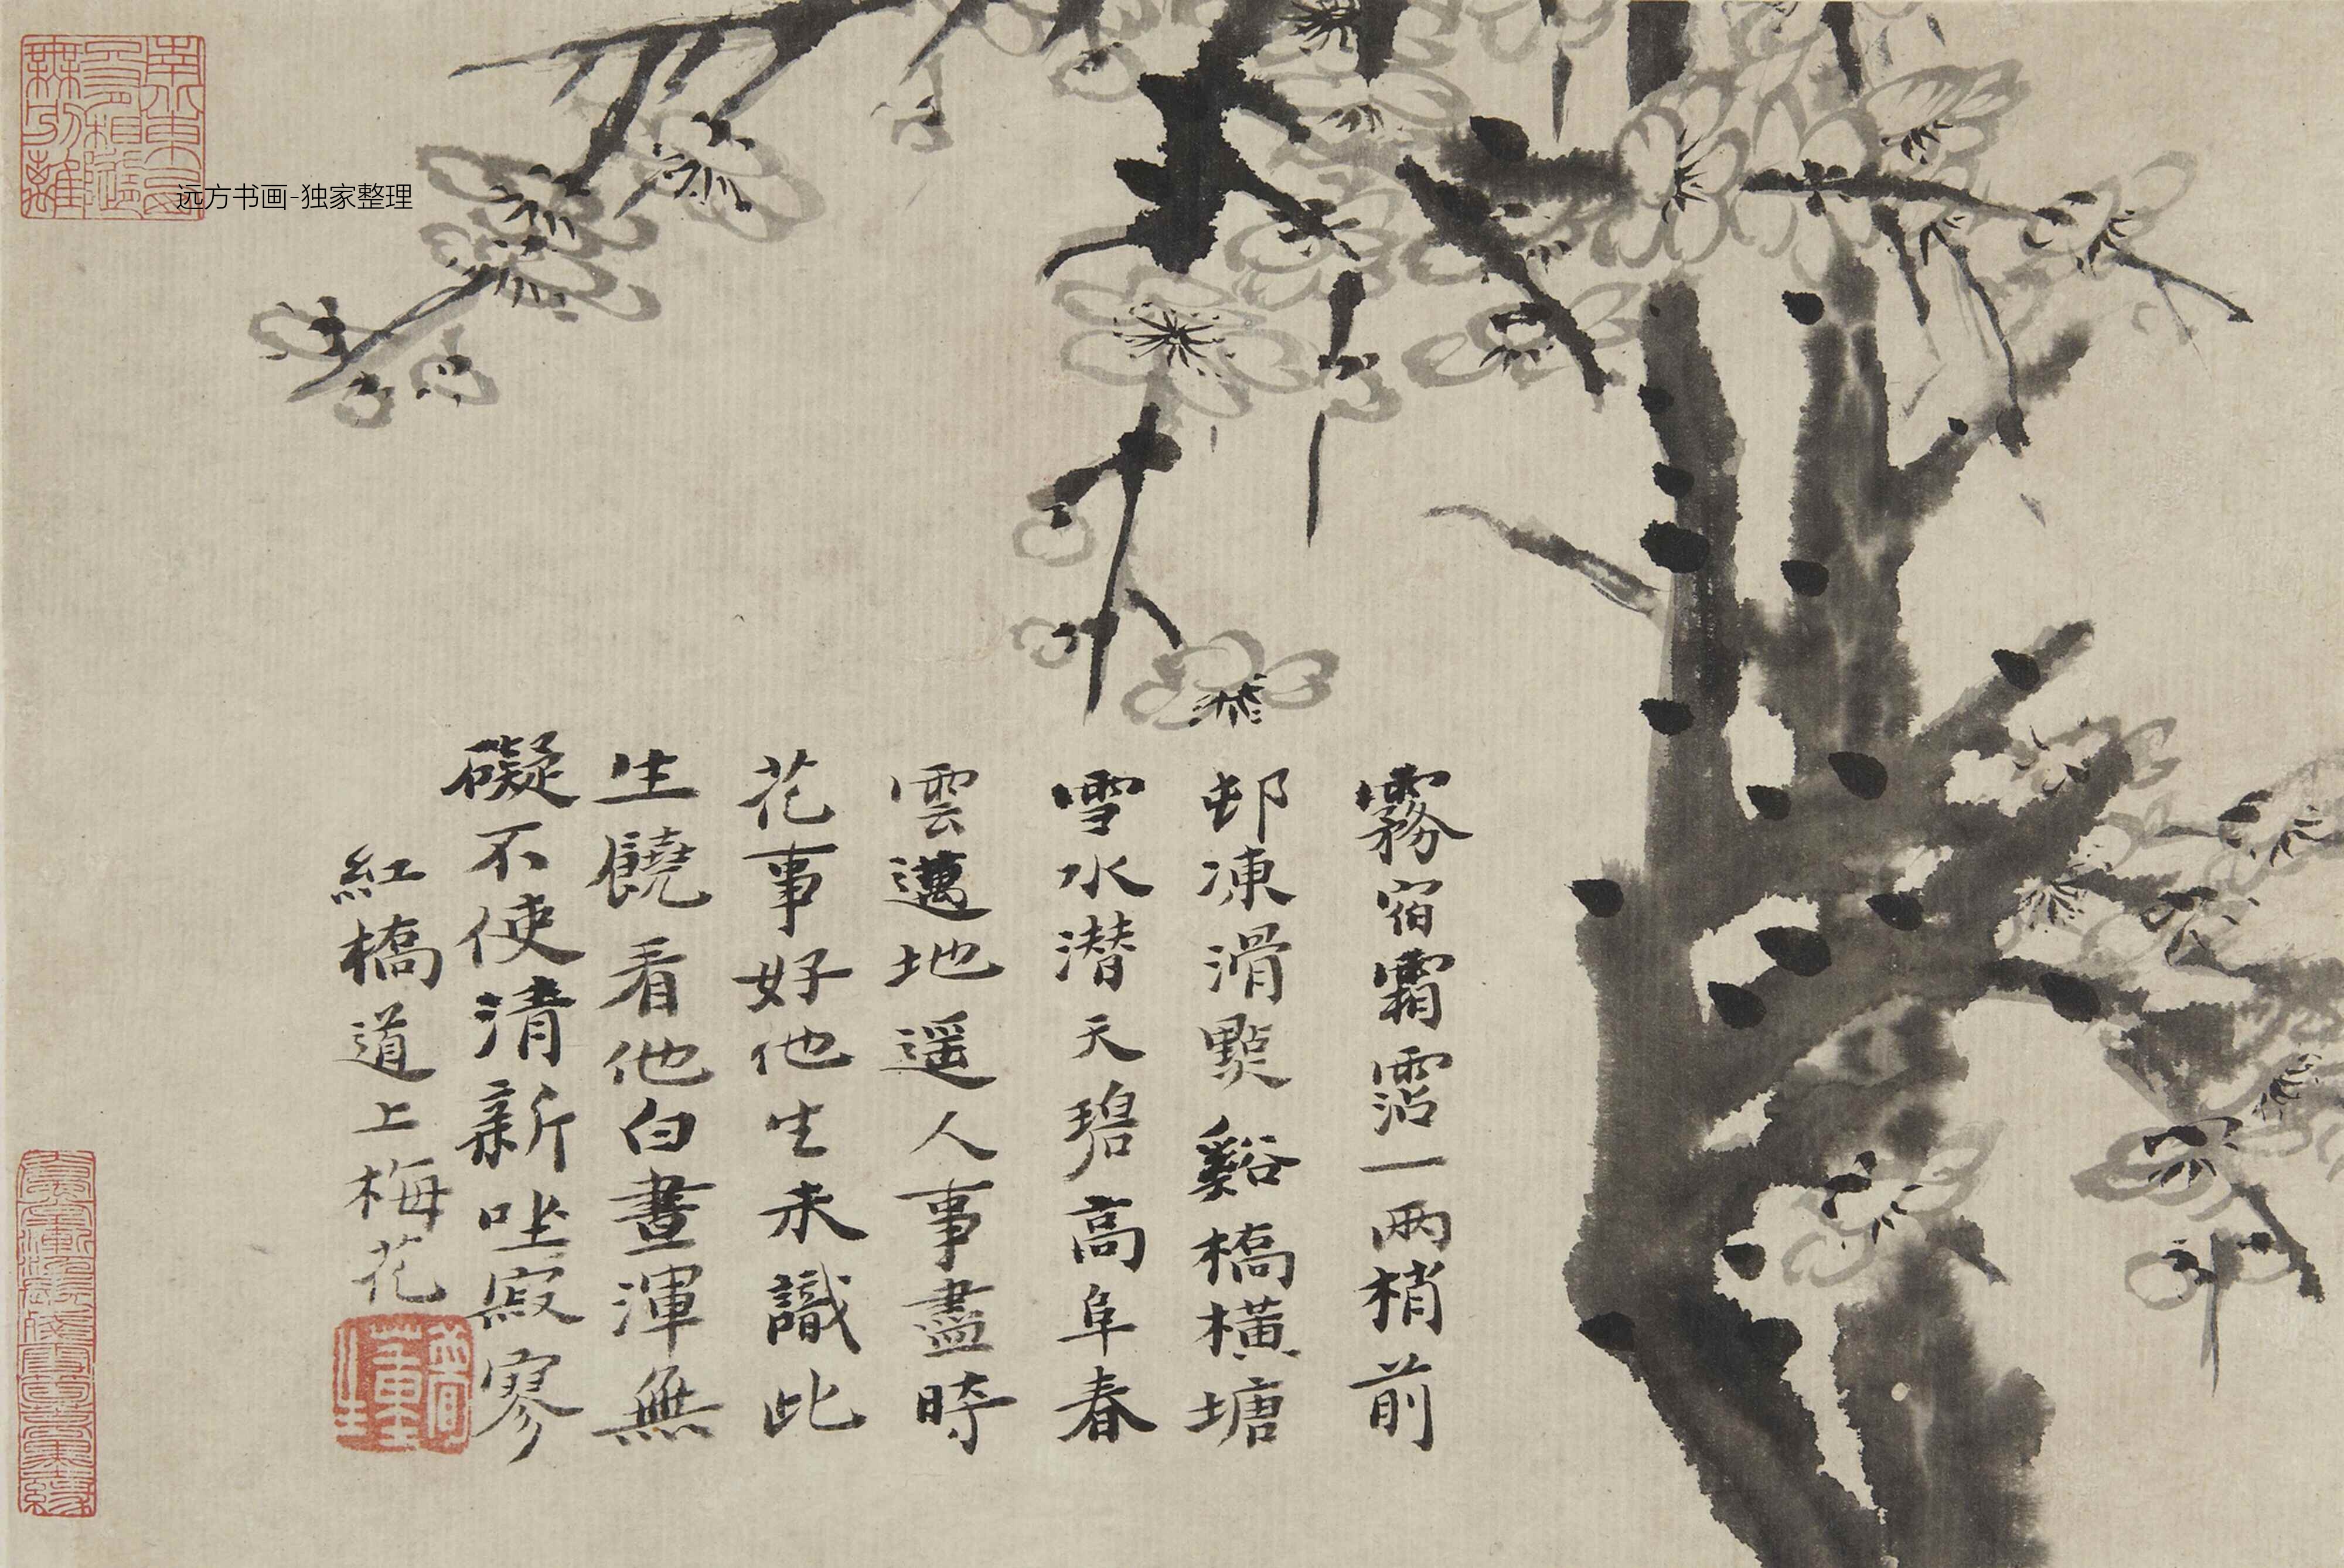 霧宿霜霑一兩梢前
邨凍滑㸃谿橋橫塘
雪水潛天碧高阜春
雲邁地遥人事盡時
花事好他生未識此
生饒看他白晝渾無
礙不使清新坐寂寥
紅橋道上梅花
远方书画-独家整理